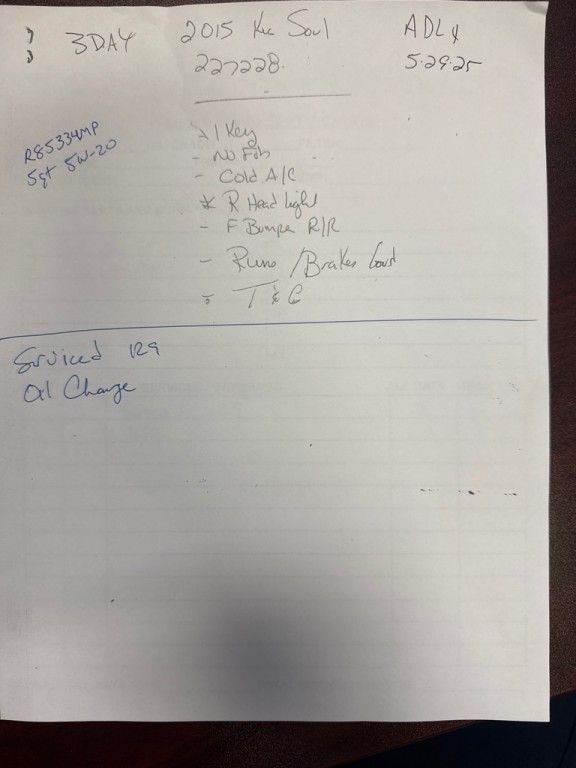 3DAY
2015 Kia Soul
227228
ADLY
5.29.25
R85334MP
5qt 5W-20
1 Key
- No Fob
- Cold A/C
* R Head light
- F Bumper R/R
- Runs / Brakes Good
- T & G
Serviced 129
Oil Change